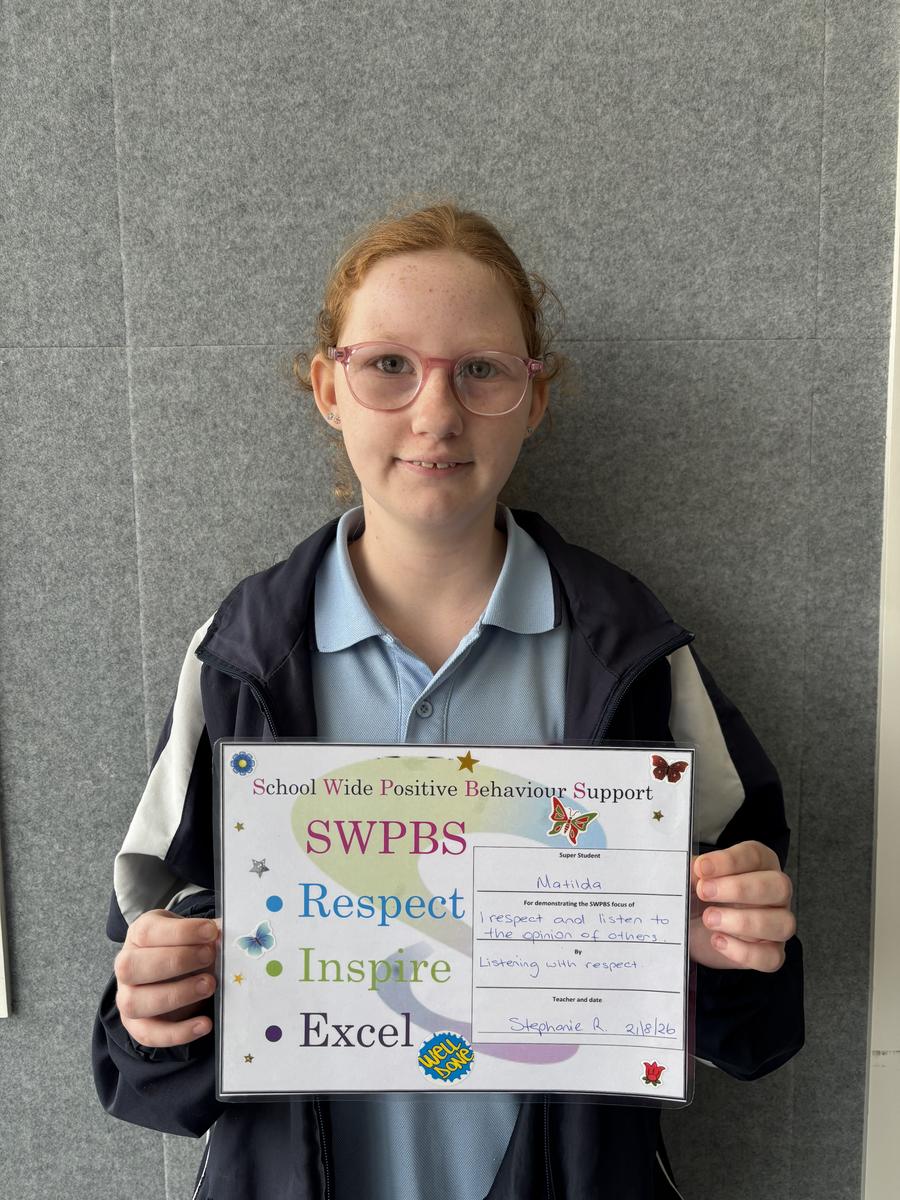 School Wide Positive Behaviour Support
SWPBS
• Respect
• Inspire
• Excel
WELL DONE
Super Student
Matilda
For demonstrating the SWPBS focus of
I respect and listen to
the opinion of others.
By
Listening with respect
Teacher and date
Stephanie R. 21/8/26